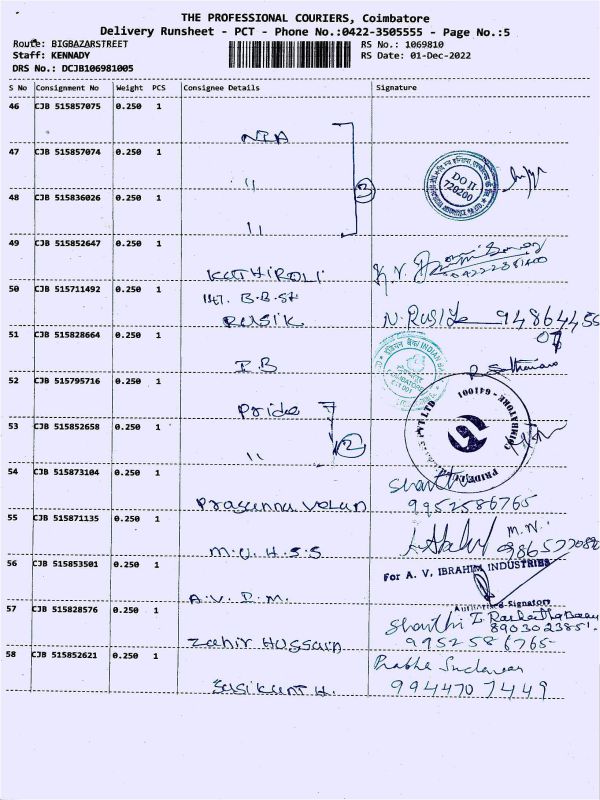 THE PROFESSIONAL COURIERS, Coimbatore
Delivery Runsheet - PCT - Phone No.:0422-3505555 - Page No.:5
Route: BIGBAZARSTREET RS No.: 1069810
Staff: KENNADY RS Date: 01-Dec-2022
DRS No.: DCJB106981005
S No Consignment No Weight PCS Consignee Details Signature
46 CJB 515857075 0.250 1
NIA
47 CJB 515857074 0.250 1
"
DO II
720200
48 CJB 515836026 0.250 1
3
"
49 CJB 515852647 0.250 1
KATHIROLI
50 CJB 515711492 0.250 1
147. B.B.St
RUSIK
51 CJB 515828664 0.250 1
I.B
52 CJB 515795716 0.250 1
Pride
641001
53 CJB 515852658 0.250 1
2
"
54 CJB 515873104 0.250 1
Prasanna Velan 9952586765
55 CJB 515871135 0.250 1
M.N.
M.U.H.S.S
56 CJB 515853501 0.250 1
For A. V. IBRAHIM INDUSTRIES
A.V.I.M.
Authorised Signatory
57 CJB 515828576 0.250 1
Shanthi
8903023851
Zahir Hussain 9952586765
58 CJB 515852621 0.250 1
Sasikant H. 9944707449